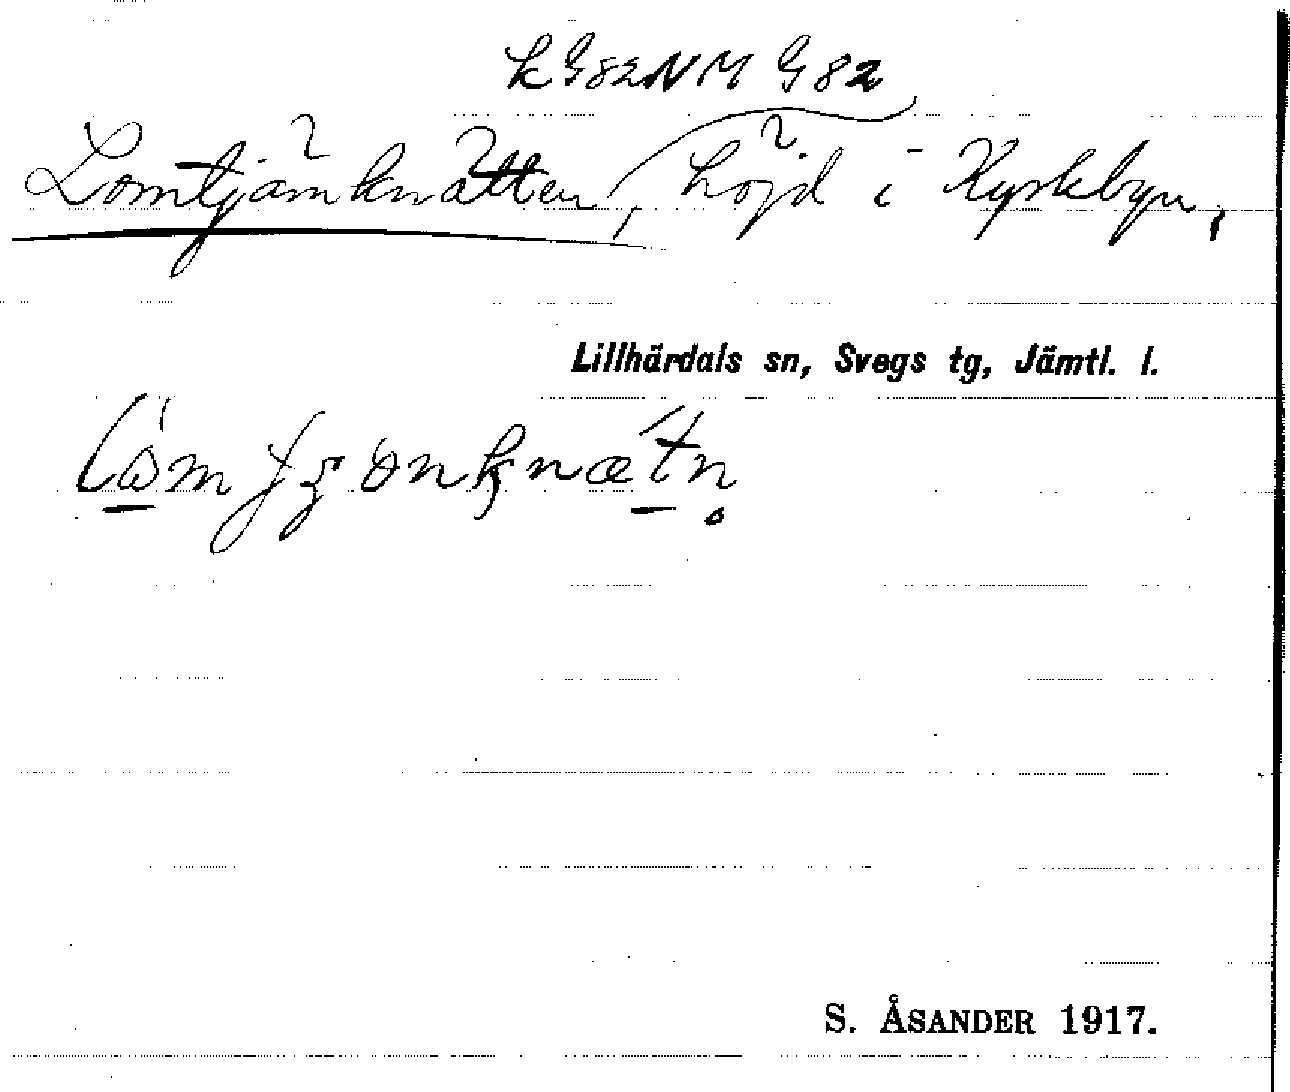 k G82NM G82
Lomtjärnknätten, höjd i Kyrkbyn,
Lillhärdals sn, Svegs tg, Jämtl. l.
S. ÅSANDER 1917.